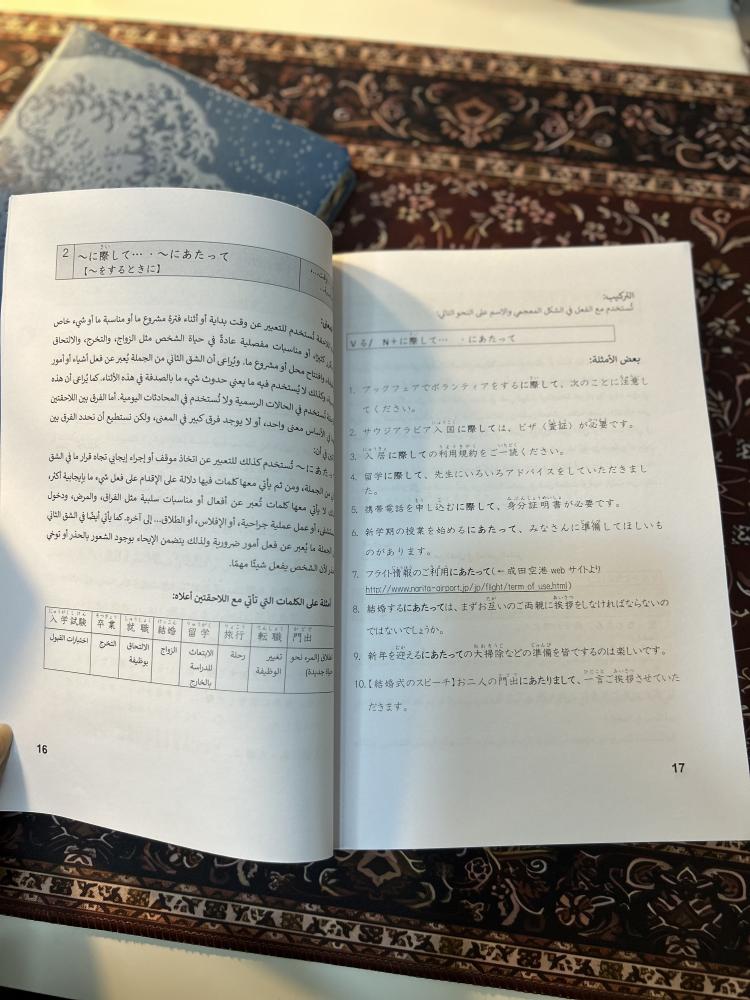 2
～に際して… ・～にあたって
【～をするときに】
تُستخدم للتعبير عن وقت بداية أو أثناء فترة مشروع ما أو مناسبة ما أو شيء خاص
أو مناسبات مفصلية عادةً في حياة الشخص مثل الزواج، والتخرج، والالتحاق
وافتتاح محل أو مشروع ما. ويُراعى أن الشق الثاني من الجملة يُعبر عن فعل أشياء أو أمور
وكذلك لا يُستخدم فيه ما يعني حدوث شيء ما بالصدفة في هذه الأثناء. كما يُراعى أن هذه
تُستخدم في الحالات الرسمية ولا تُستخدم في المحادثات اليومية. أما الفرق بين اللاحقتين
في الأساس معنى واحد، أو لا يوجد فرق كبير في المعنى، ولكن نستطيع أن نحدد الفرق بين
في أن:
～にあたって تُستخدم كذلك للتعبير عن اتخاذ موقف أو إجراء إيجابي تجاه قرار ما في الشق
من الجملة، ومن ثم يأتي معها كلمات فيها دلالة على الإقدام على فعل شيء ما بإيجابية أكثر،
لا يأتي معها كلمات تُعبر عن أفعال أو مناسبات سلبية مثل الفراق، والمرض، ودخول
أو عمل عملية جراحية، أو الإفلاس، أو الطلاق... إلى آخره. كما يأتي أيضًا في الشق الثاني
الجملة ما يُعبر عن فعل أمور ضرورية ولذلك يتضمن الإيحاء بوجود الشعور بالحذر أو توخي
لأن الشخص يفعل شيئًا مهمًا.
أمثلة على الكلمات التي تأتي مع اللاحقتين أعلاه:
入学試験 卒業 就職 結婚 留学 旅行 転職 門出
اختبارات القبول التخرج الالتحاق بوظيفة الزواج الابتعاث للدراسة بالخارج رحلة تغيير الوظيفة انطلاق (المرء نحو حياة جديدة)
16
التركيب:
تُستخدم مع الفعل في الشكل المعجمي والاسم على النحو التالي:
Vる/ N+に際して… ・にあたって
بعض الأمثلة:
1. ブックフェアでボランティアをするに際して、次のことに注意し
てください。
2. サウジアラビア入国に際しては、ビザ（査証）が必要です。
3. 入居に際しての利用規約をご一読ください。
4. 留学に際して、先生にいろいろアドバイスをしていただきまし
た。
5. 携帯電話を申し込むに際して、身分証明書が必要です。
6. 新学期の授業を始めるにあたって、みなさんに準備してほしいも
のがあります。
7. フライト情報のご利用にあたって(←成田空港 web サイトより
http://www.narita-airport.jp/jp/flight/term_of_use.html)
8. 結婚するにあたっては、まずお互いのご両親に挨拶をしなければならないの
ではないでしょうか。
9. 新年を迎えるにあたっての大掃除などの準備を皆でするのは楽しいです。
10.【結婚式のスピーチ】お二人の門出にあたりまして、一言ご挨拶させていた
だきます。
17